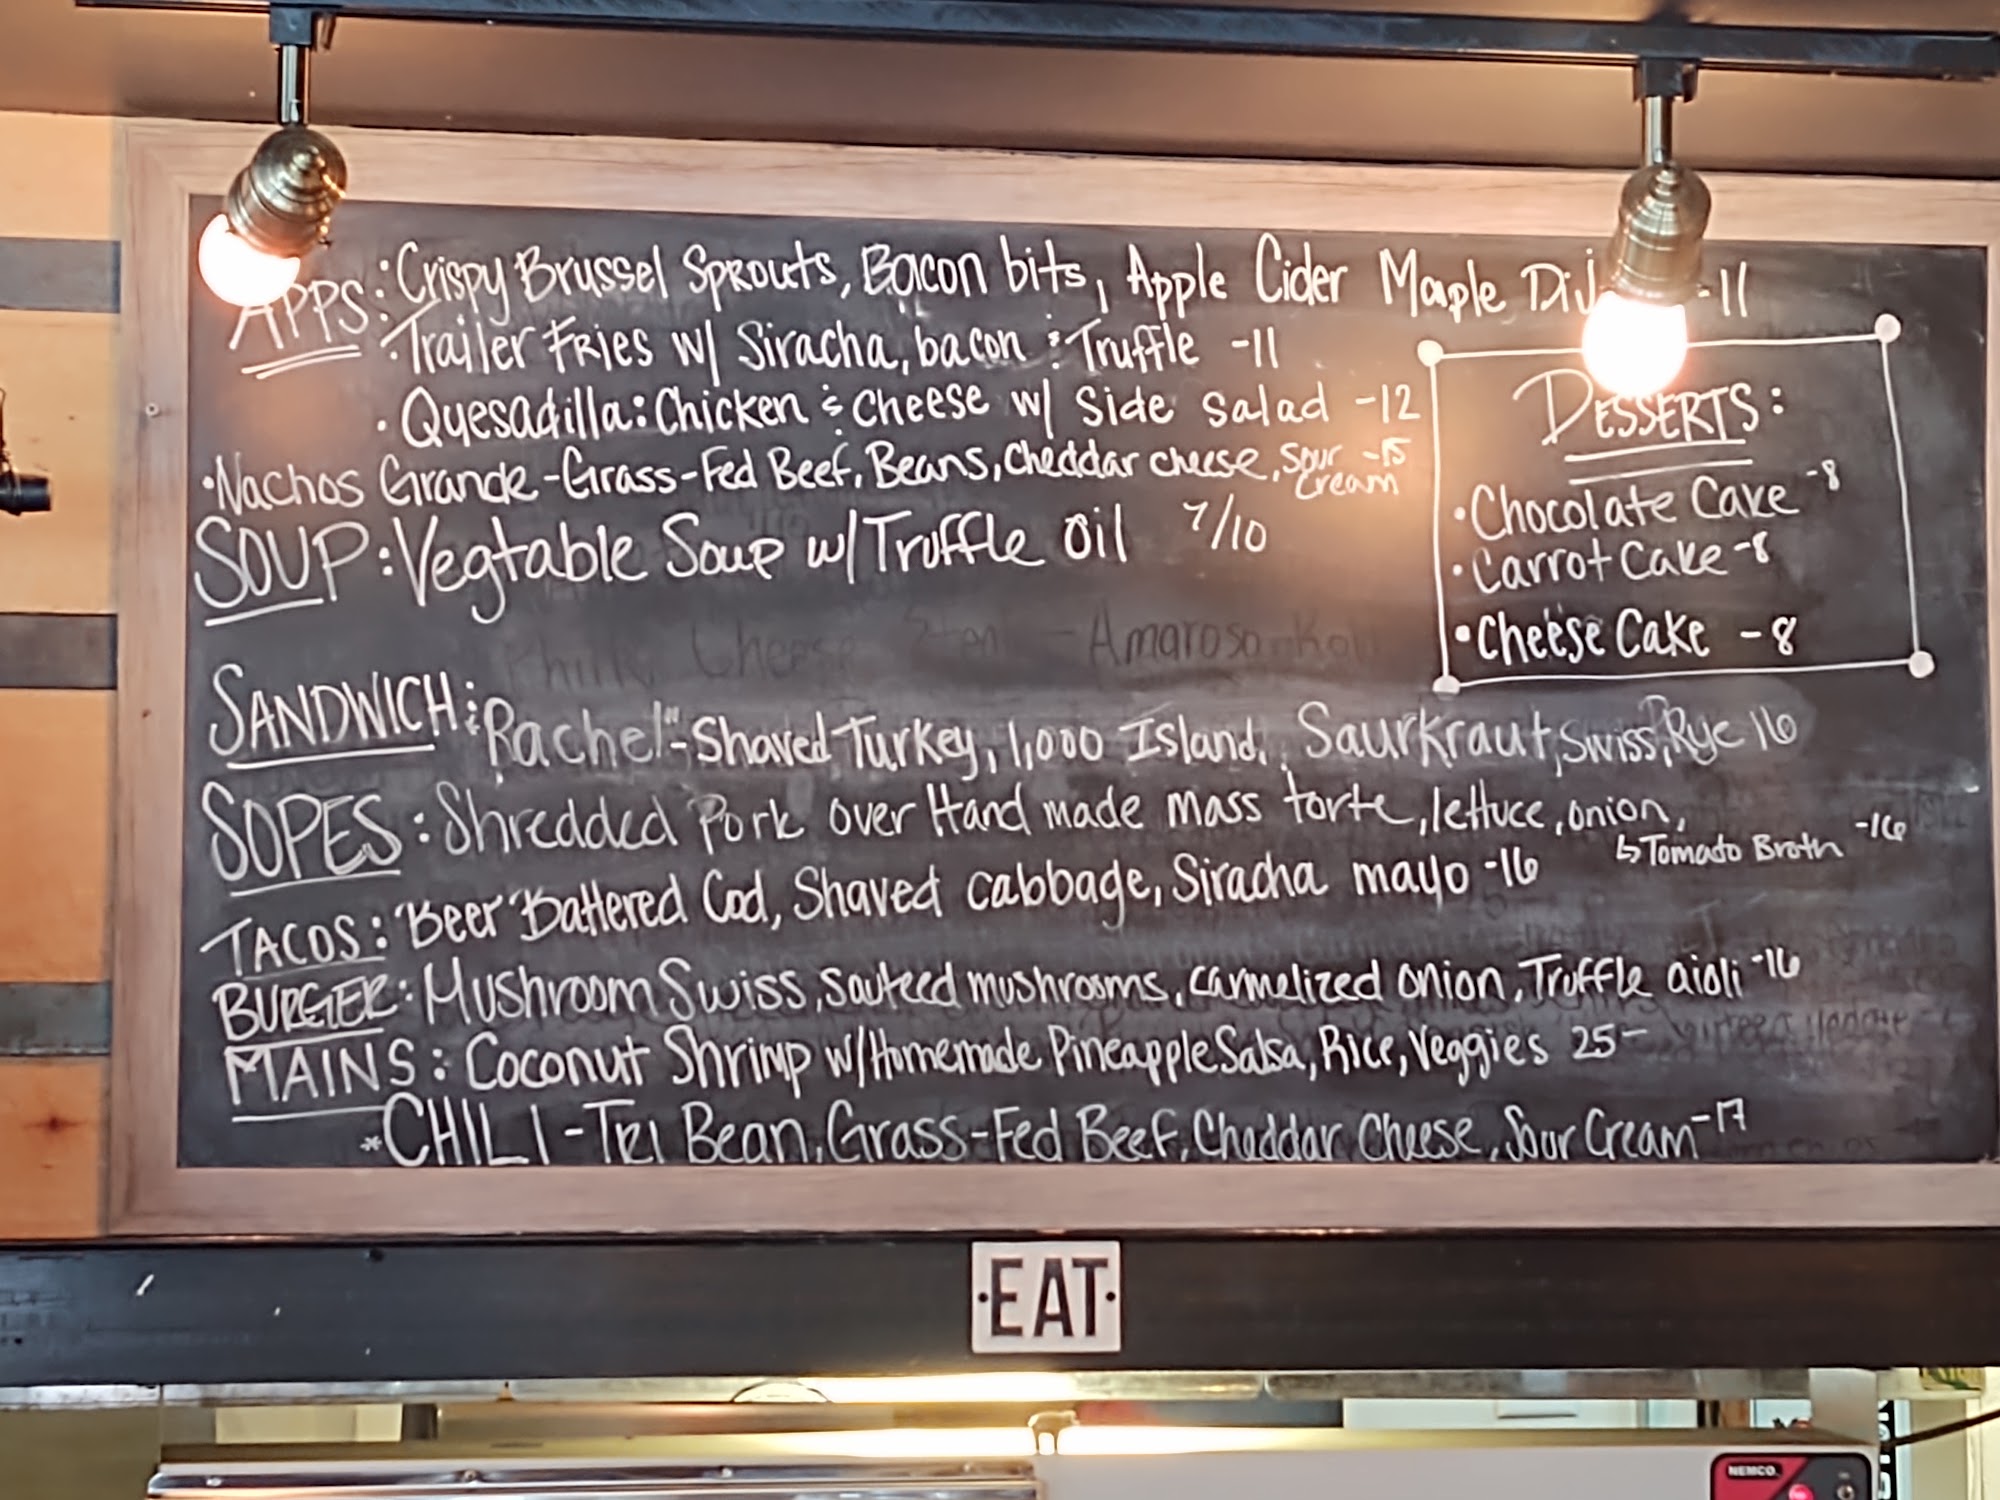 APPS: · Crispy Brussel Sprouts, Bacon bits, Apple Cider Maple -11
· Trailer Fries w/ Siracha, bacon & Truffle -11
· Quesadilla: Chicken & Cheese w/ Side Salad -12
· Nachos Grande - Grass-Fed Beef, Beans, Cheddar cheese, Sour cream -15
SOUP: Vegtable Soup w/ Truffle Oil 7/10
DESSERTS:
· Chocolate Cake -8
· Carrot Cake -8
· Cheese Cake -8
SANDWICH: "Rachel" - Shaved Turkey, 1,000 Island, Saurkraut, Swiss, Rye 16
SOPES: Shredded Pork over Hand made mass torte, lettuce, onion,
↳ Tomato Broth -16
TACOS: Beer Battered Cod, Shaved cabbage, Siracha mayo -16
BURGER: Mushroom Swiss, Sauteed mushrooms, carmelized onion, Truffle aioli -16
MAINS: Coconut Shrimp w/ Homemade Pineapple Salsa, Rice, Veggies 25-
* CHILI - Tri Bean, Grass-Fed Beef, Cheddar Cheese, Sour Cream -17
· EAT ·
NEMCO